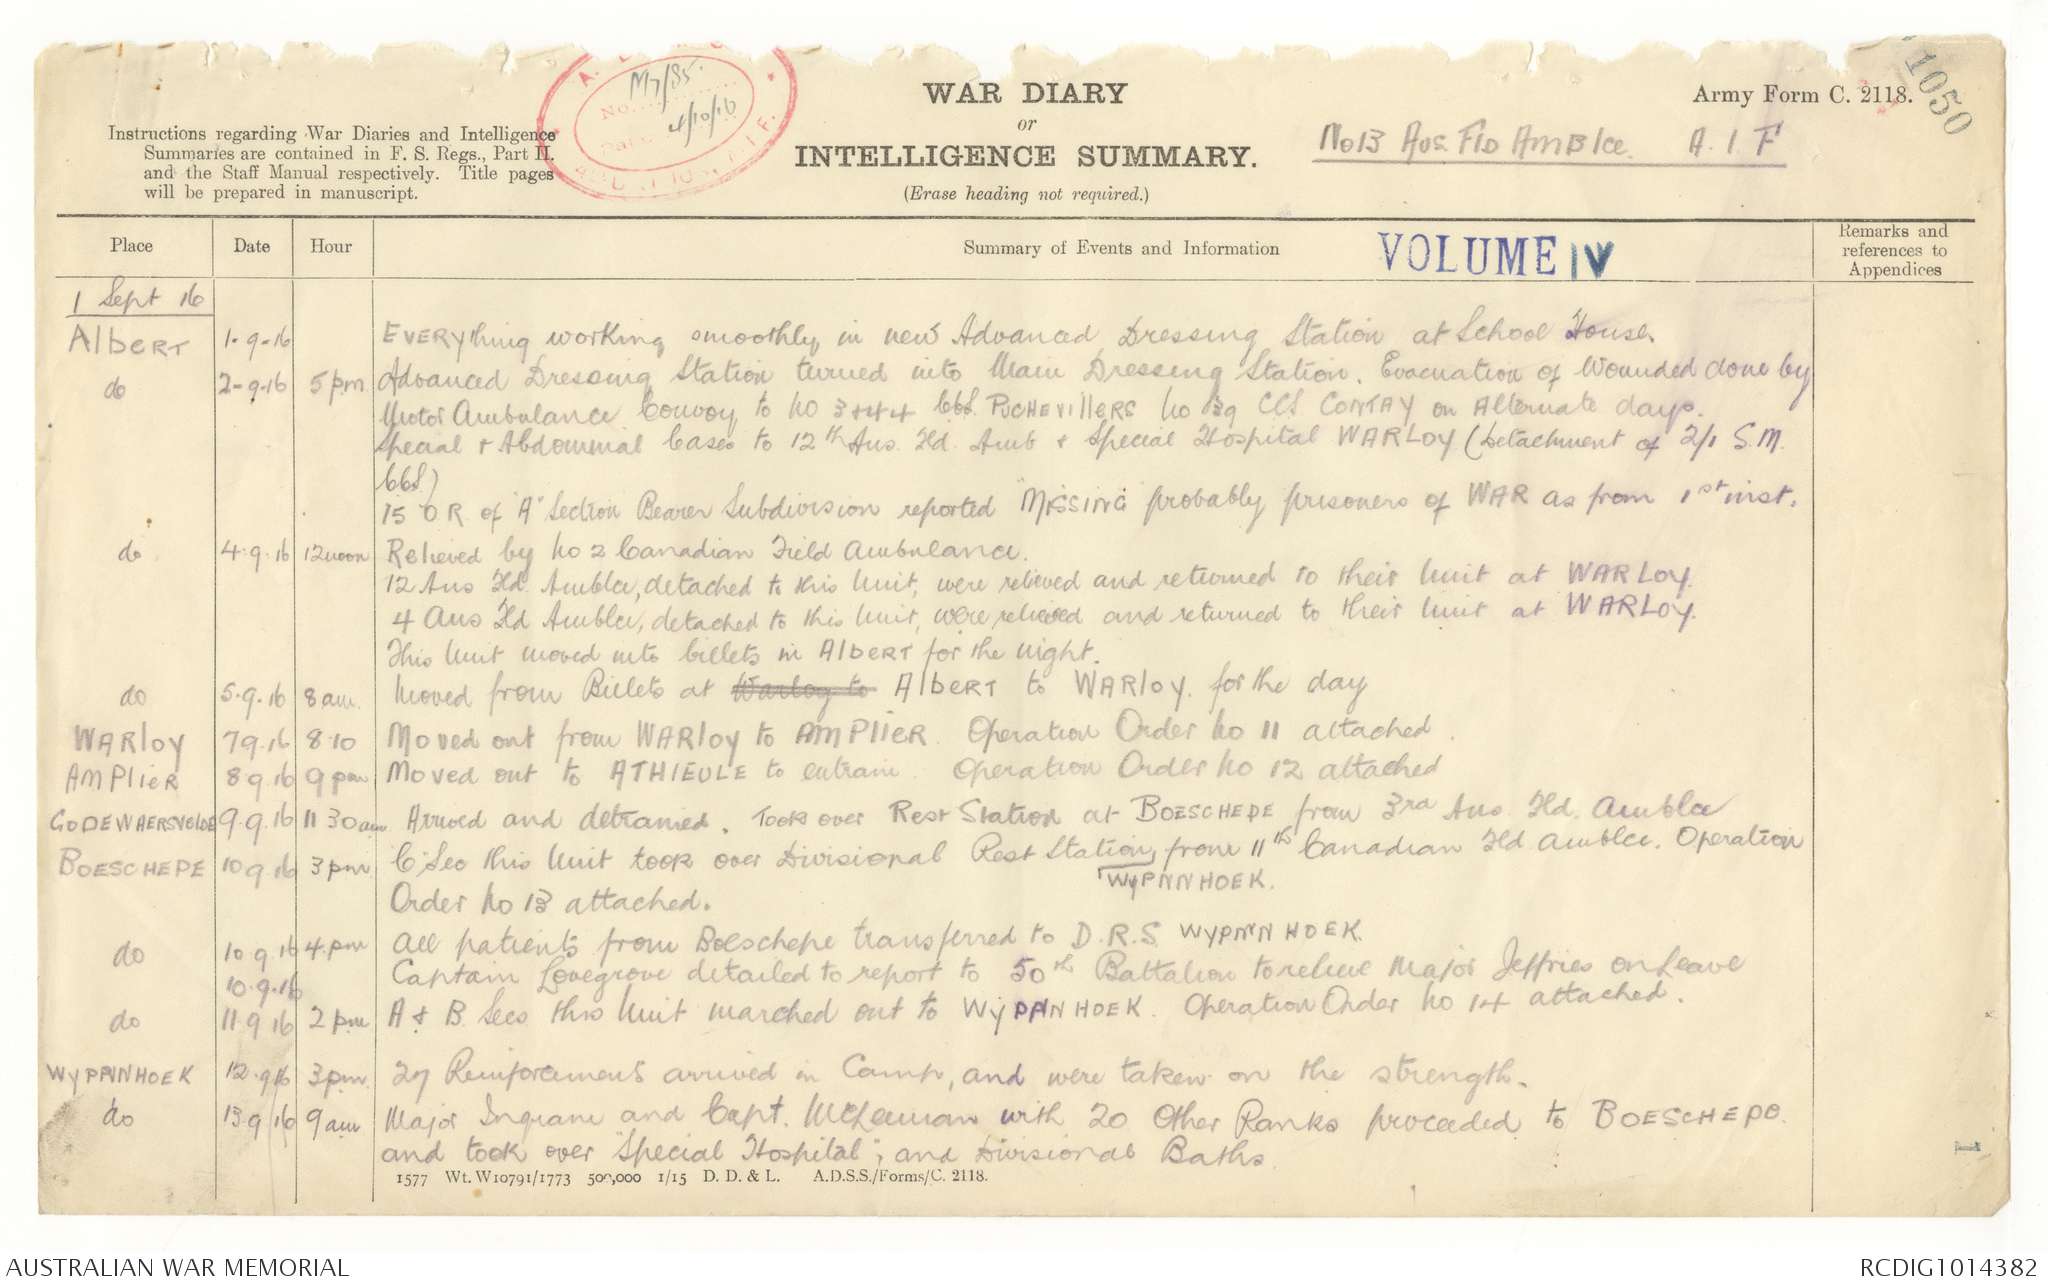 WAR DIARY
or
INTELLIGENCE SUMMARY.
(Erase heading not required.)
Army Form C. 2118.
1050
No 13 Aus Fld Amblce. A. I. F
Instructions regarding War Diaries and Intelligence
Summaries are contained in F. S. Regs., Part II.
and the Staff Manual respectively. Title pages
will be prepared in manuscript.
No. M7/85
4/10/16
Place Date Hour Summary of Events and Information VOLUME IV Remarks and references to Appendices
1 Sept 16
Albert 1-9-16 Everything working smoothly in new Advanced Dressing Station at School House.
do 2-9-16 5pm Advanced Dressing Station turned into Main Dressing Station. Evacuation of Wounded done by
Motor Ambulance Convoy to No 3 & 44 CCS. PUCHEVILLERS No 39 CCS CONTAY on Alternate days.
Special & Abdominal Cases to 12th Aus. Fld. Amb & Special Hospital WARLOY (Detachment of 2/1 S.M.
CCS)
15 O R. of "A" Section Bearer Subdivision reported "MISSING" probably prisoners of WAR as from 1st inst.
do 4.9.16 12 noon Relieved by No 2 Canadian Field Ambulance.
12 Aus Fld. Amblce, detached to this Unit, were relieved and returned to their Unit at WARLOY.
4 Aus Fld Amblce, detached to this Unit, were relieved and returned to their Unit at WARLOY.
This Unit moved into billets in ALBERT for the night.
do 5.9.16 8am. Moved from Billets at Warloy to ALBERT to WARLOY. for the day
WARLOY 7 9.16 8.10 Moved out from WARLOY to AMPLIER. Operation Order No 11 attached.
AMPLIER 8 9.16 9 pm Moved out to ATHIEULE to entrain. Operation Order No 12 attached
GODEWAERSVELDE 9.9.16 11 30am Arrived and detrained. Took over Rest Station at BOESCHEPE from 3rd Aus. Fld. Amblce
BOESCHEPE 10 9.16 3pm C Sec this Unit took over Divisional Rest Station, from 11th Canadian Fld Amblce. Operation
WYPNNHOEK.
Order No 13 attached.
do 10 9.16 4.pm All patients from Boeschepe transferred to D.R.S WYPNNHOEK.
10.9.16 Captain Lovegrove detailed to report to 50th Battalion to relieve Major Jeffries on Leave
do 11.9 16 2 pm A & B Secs this Unit marched out to WYPNNHOEK. Operation Order No 14 attached.
WYPNNHOEK 12.9.16 3pm. 27 Reinforcements arrived in Camp, and were taken on the strength.
do 13.9 16 9am Major Ingram and Capt. McLennan with 20 Other Ranks proceeded to BOESCHEPE.
and took over "Special Hospital", and Divisional Baths.
1577 Wt. W10791/1773 500,000 1/15 D. D. & L. A.D.S.S./Forms/C. 2118.
1
AUSTRALIAN WAR MEMORIAL
RCDIG1014382